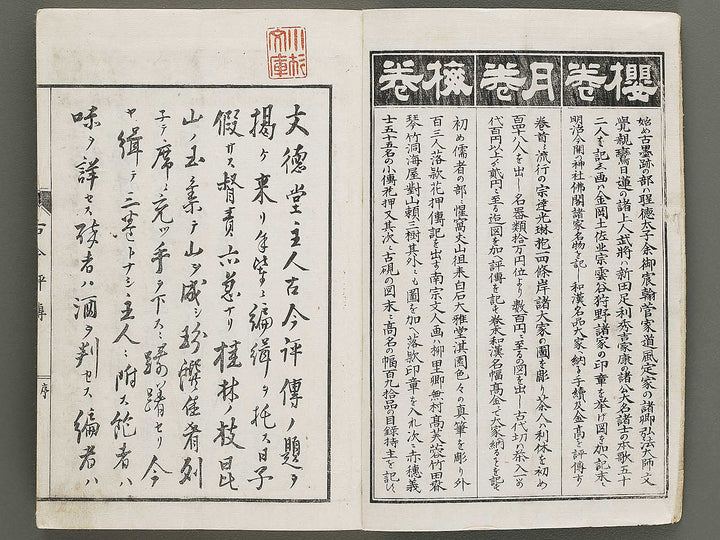 櫻卷
始め古墨跡の部ハ聖德太子余御宸翰菅家道風定家の諸卿弘法大師文
覺親鸞日蓮の諸上人武將ハ新田足利秀吉家康の諸公大名諸士の本歌五十
二人を記し画ハ金岡土佐光宗雲谷狩野諸家の印章を挙げ図を加へ記末
明治今閣の神社佛閣諸家名物を記し和漢名品大家納る手續及金高を評傳す
月卷
卷首ハ流行の宗達光琳抱一四條岸諸大家の圖を彫り茶人ハ利休を初め
百四十八人を出し名噐類拾万円位より数百円に至るの図を出し古代切の茶入一の
代百円以上が貳円に至る迄図を加へ評傳を記し卷末和漢名幅髙金にて大家納ることを記す
梅卷
初め儒者の部ハ惺窩丈山徂来白石大雅堂淇園色々の真筆を彫り外
百三人落款花押傳記を出す南宗文人画ハ柳里卿蕪村髙芙蓉竹田米
琴竹洞海屋對山頼三樹其外とも圖を加へ落款印章を入れ次に赤穗義
士五十五名の小傳花押又其次に古硯の図末に髙名の幅百九拾品の目録持主を記し
小杉文庫
文德堂主人古今評傳ノ題ヲ
揭ケ来リ余輩ニ編緝ヲ托ス日子
假サス督責六急ナリ桂林ノ枝昆
山ノ玉ヲ集テ山ヲ成シ珍濮佳肴列
子テ席ニ充ツ手ヲ下スニ躊躇セリ今
ヤ緝テ三卷トナシ主人ニ附ス飽者ハ
味ヲ詳セス醉者ハ酒ヲ判セス編者ハ
古今評傳
序